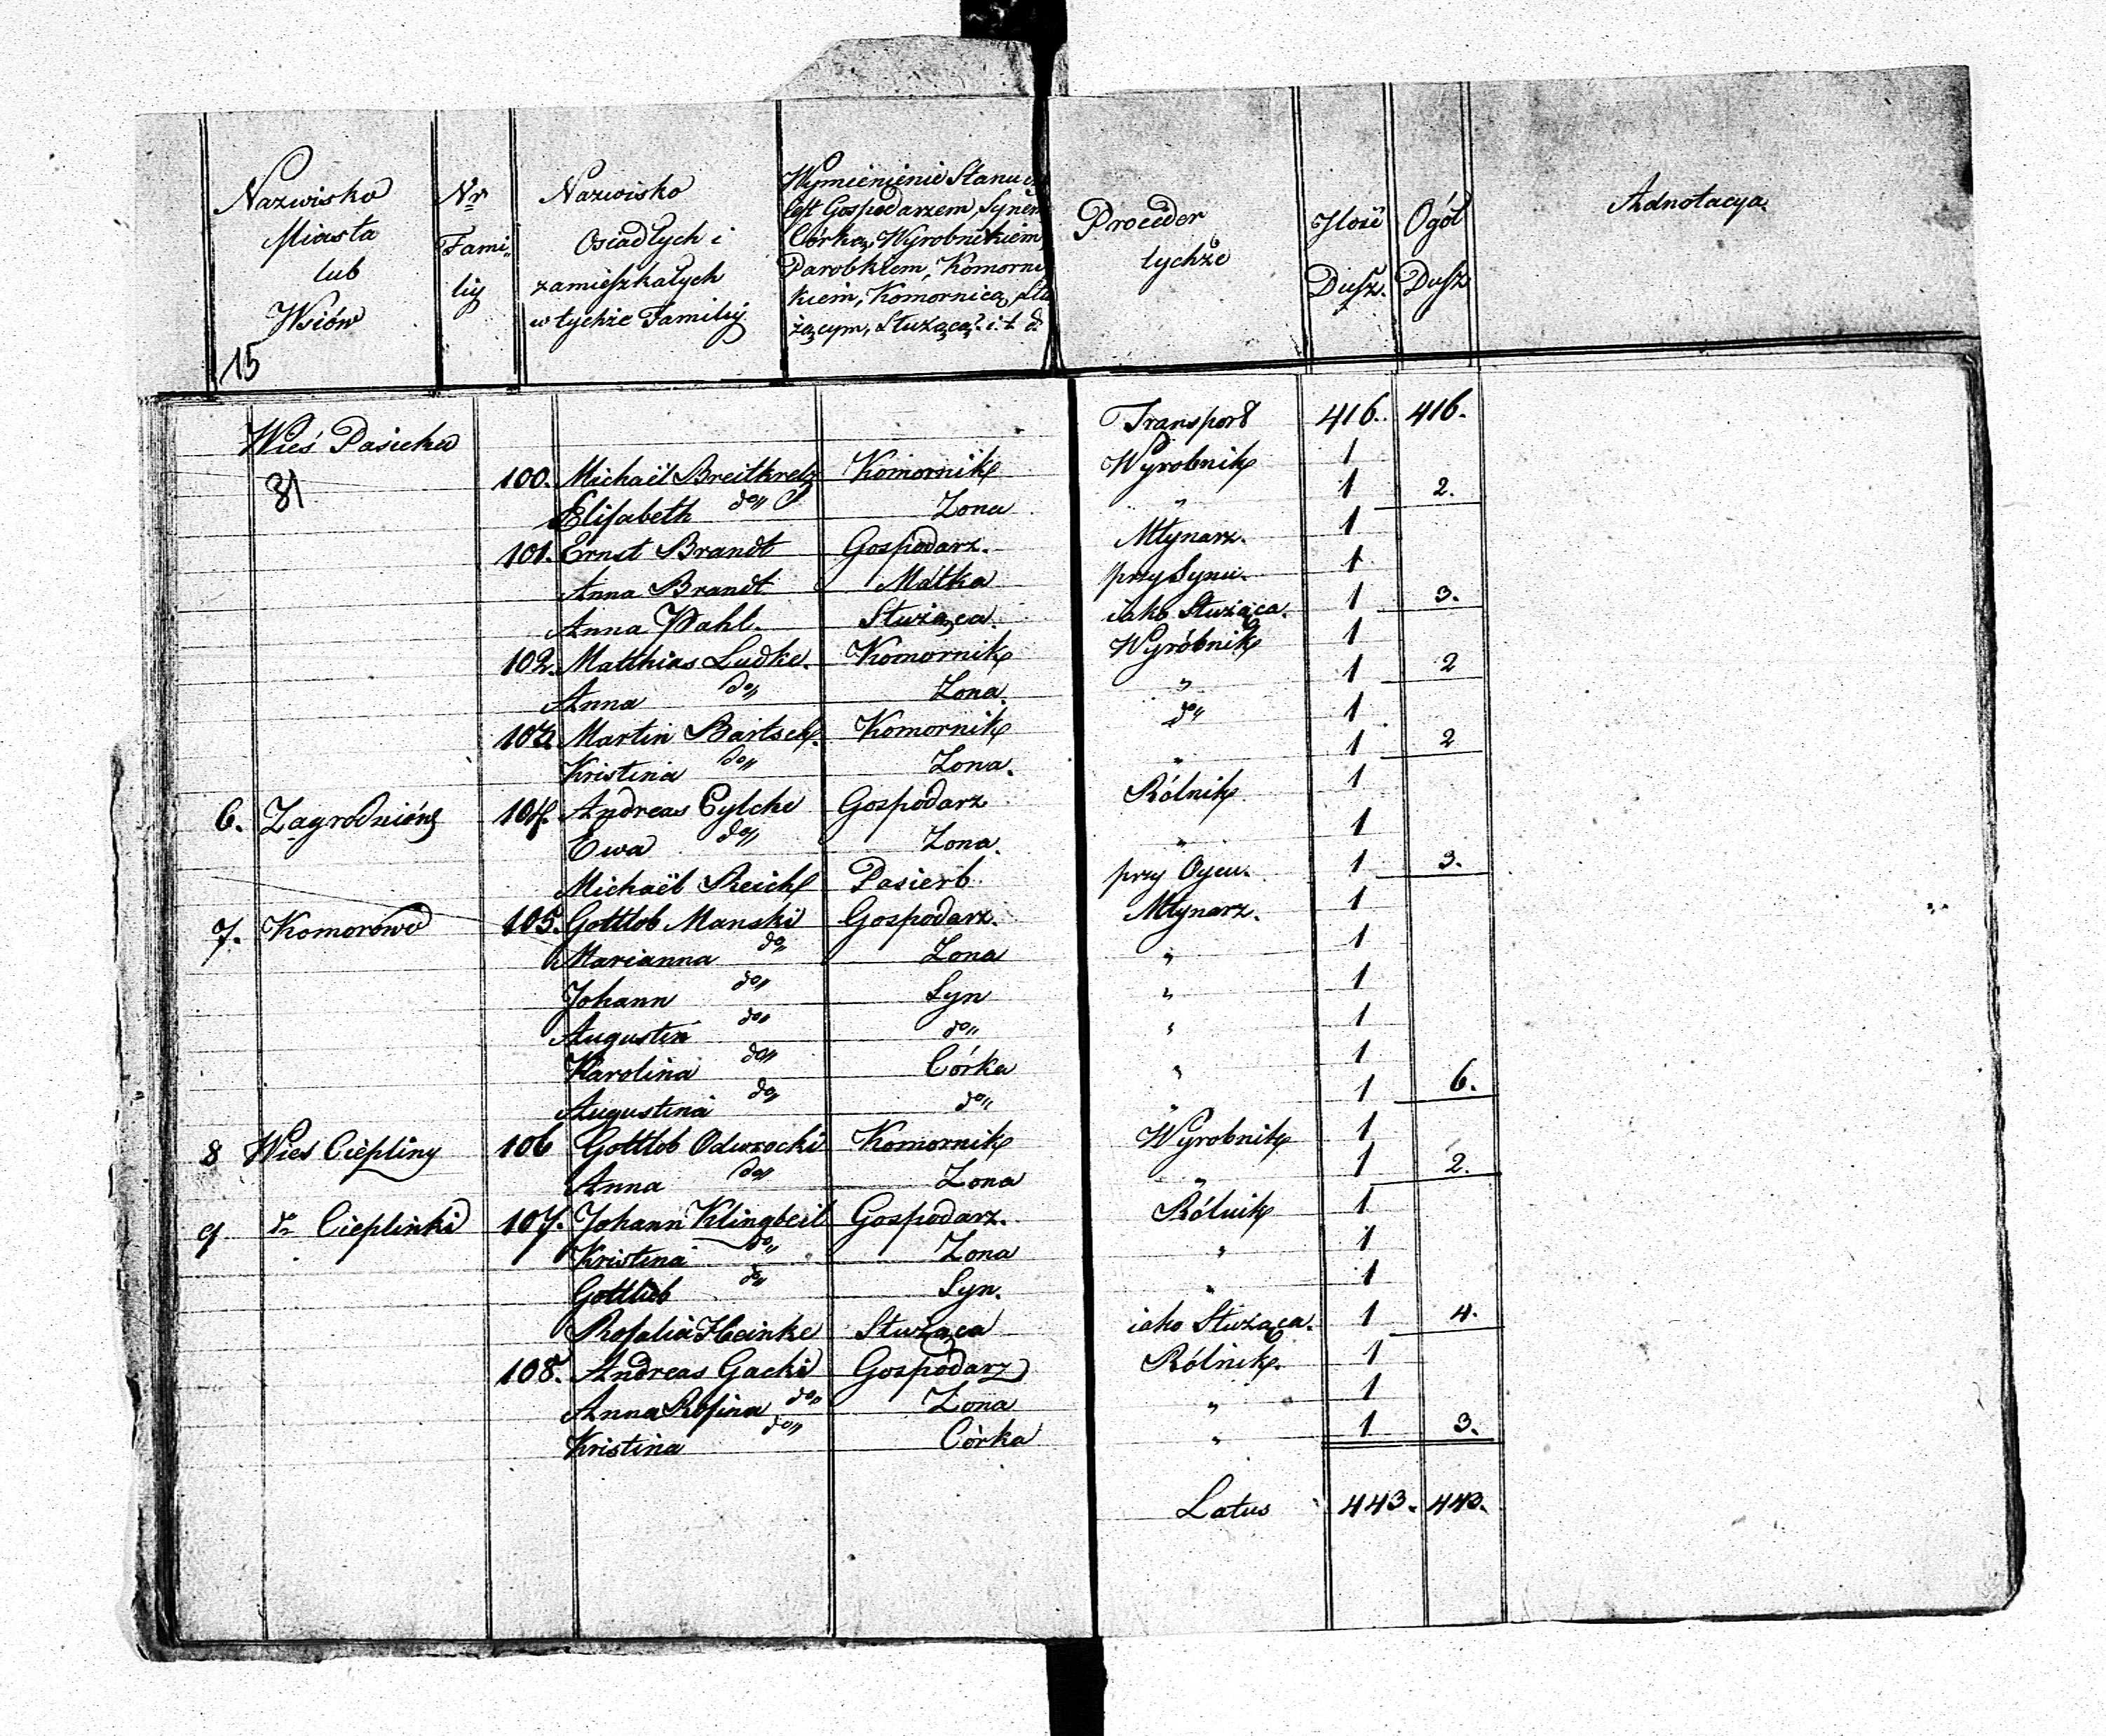 Nazwisko Miasta lub Wsiów
Nr Familij
Nazwisko Osiadłych i zamieszkałych w tychże Familij
Wymienienie Stanu
Gospodarzem, Synem
Córką, Wyrobnikiem
Parobkiem, Komorni
kiem, Komornicą, Słu
żącym, Służącą i. t. d
Proceder tychże
Ilość Dusz.
Ogół Dusz
Adnotacya.
15
Transport 416. 416.
Wieś Pasieka
81
100. Michaël Breitkretz Komornik Wyrobnik 1
Elisabeth do Zona " 1 2.
101. Ernst Brandt Gospodarz. Młynarz. 1
Anna Brandt Matka przy Synu. 1
Anna Pahl. Służąca. iako Służąca. 1 3.
102. Matthias Ludke. Komornik Wyróbnik 1
Anna do Zona " 1 2
103. Martin Bartsch. Komornik do 1
Kristina do Zona. " 1 2
6. Zagrodnióny 104. Andreas Gylche Gospodarz Rólnik 1
Ewa do Zona. " 1
Michaël Reich Pasierb przy Oycu. 1 3.
7. Komorowo 105. Gottlob Manski Gospodarz. Młynarz. 1
Marianna do Zona " 1
Johann do Syn " 1
Augustin do do " 1
Karolina do Córka " 1
Augustina do do " 1 6.
8 Wies Ciepliny 106 Gottlob Odwrocki Komornik Wyrobnik 1
Anna do Zona " 1 2.
9 do Cieplinki 107. Johann Klingbeil Gospodarz. Rólnik 1
Kristina do Zona " 1
Gottlieb do Syn. " 1
Rosalia Heinke Służąca iako Służąca. 1 4.
108. Andreas Gacki Gospodarz Rólnik. 1
Anna Rosina do Zona " 1
Kristina do Córka " 1 3.
Latus 443. 443.